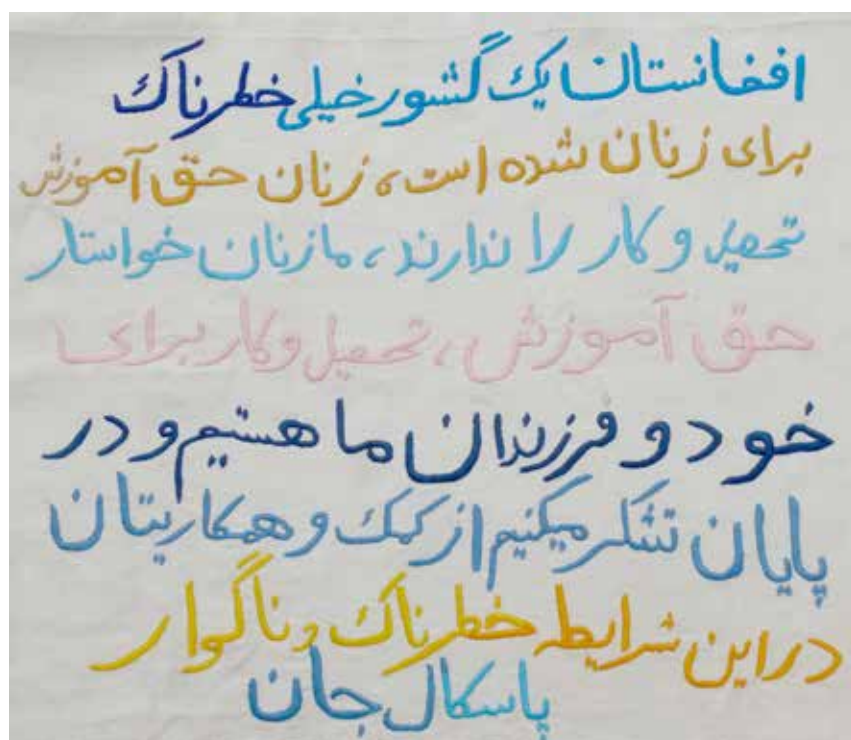 افغانستان یک گشور خیلی خطرناک
برای زنان شده است، زنان حق آموزش
تحصیل و کار را ندارند، ما زنان خواستار
حق آموزش، تحصیل و کار برای
خود و فرزندان ما هستیم و در
پایان تشکر میکنیم از کمک و همکاریتان
در این شرایط خطرناک و ناگوار
پاسکال جان